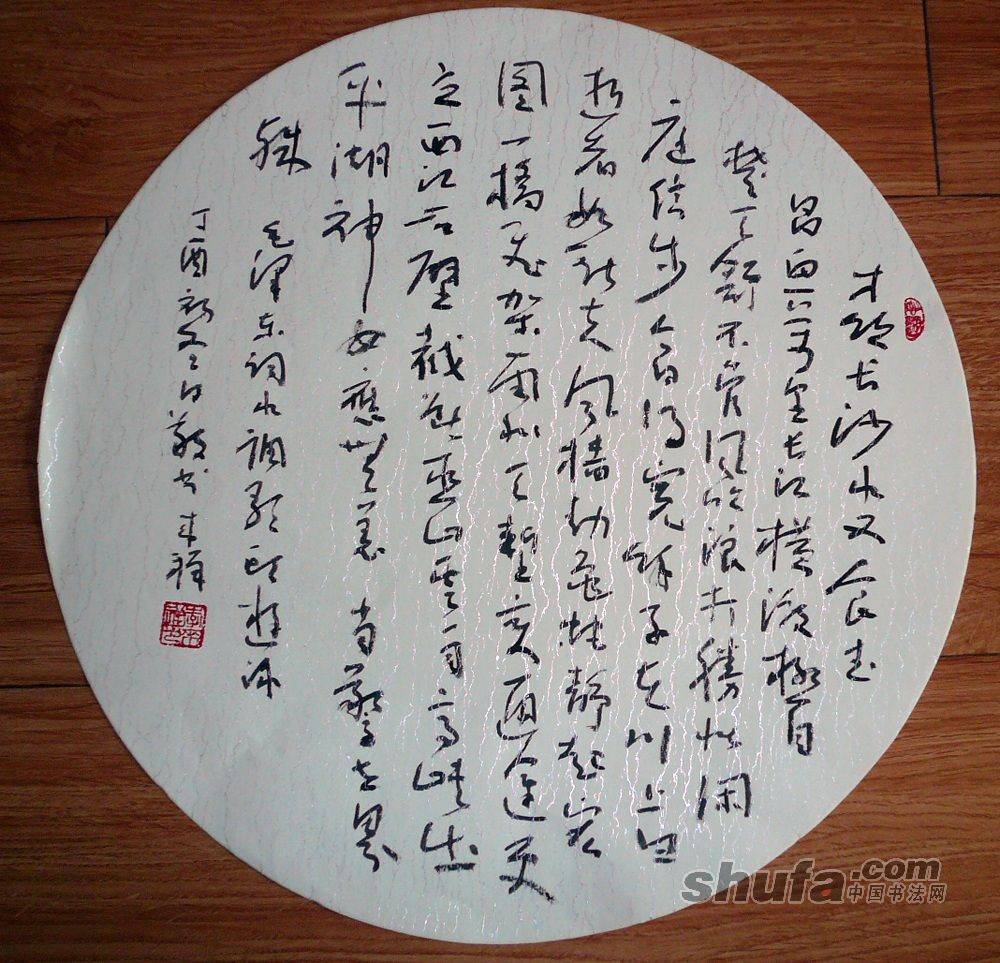 才饮长沙水又食武
昌鱼万里长江横渡极目
楚天舒不管风吹浪打胜似闲
庭信步今日得宽馀子在川上曰
逝者如斯夫风樯动龟蛇静起宏
图一桥飞架南北天堑变通途更
立西江石壁截断巫山云雨高峡出
平湖神女應無恙当驚世界
殊
毛泽东词水调歌头游泳
丁酉初冬日敬书来祥
shufa.com
中国书法网